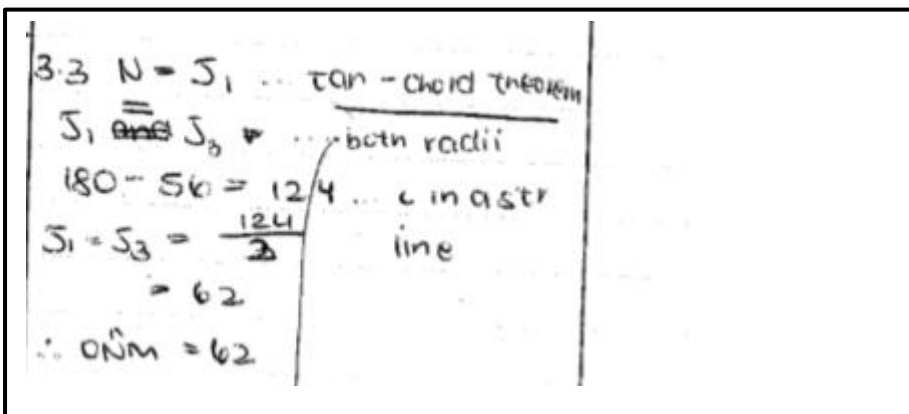 3.3 N = J₁ ... tan - chord theorem
J₁ = J₃ ... both radii
180 - 56 = 124 ... ∠ in a str
line
J₁ = J₃ = 124/2
= 62
∴ ON̂M = 62